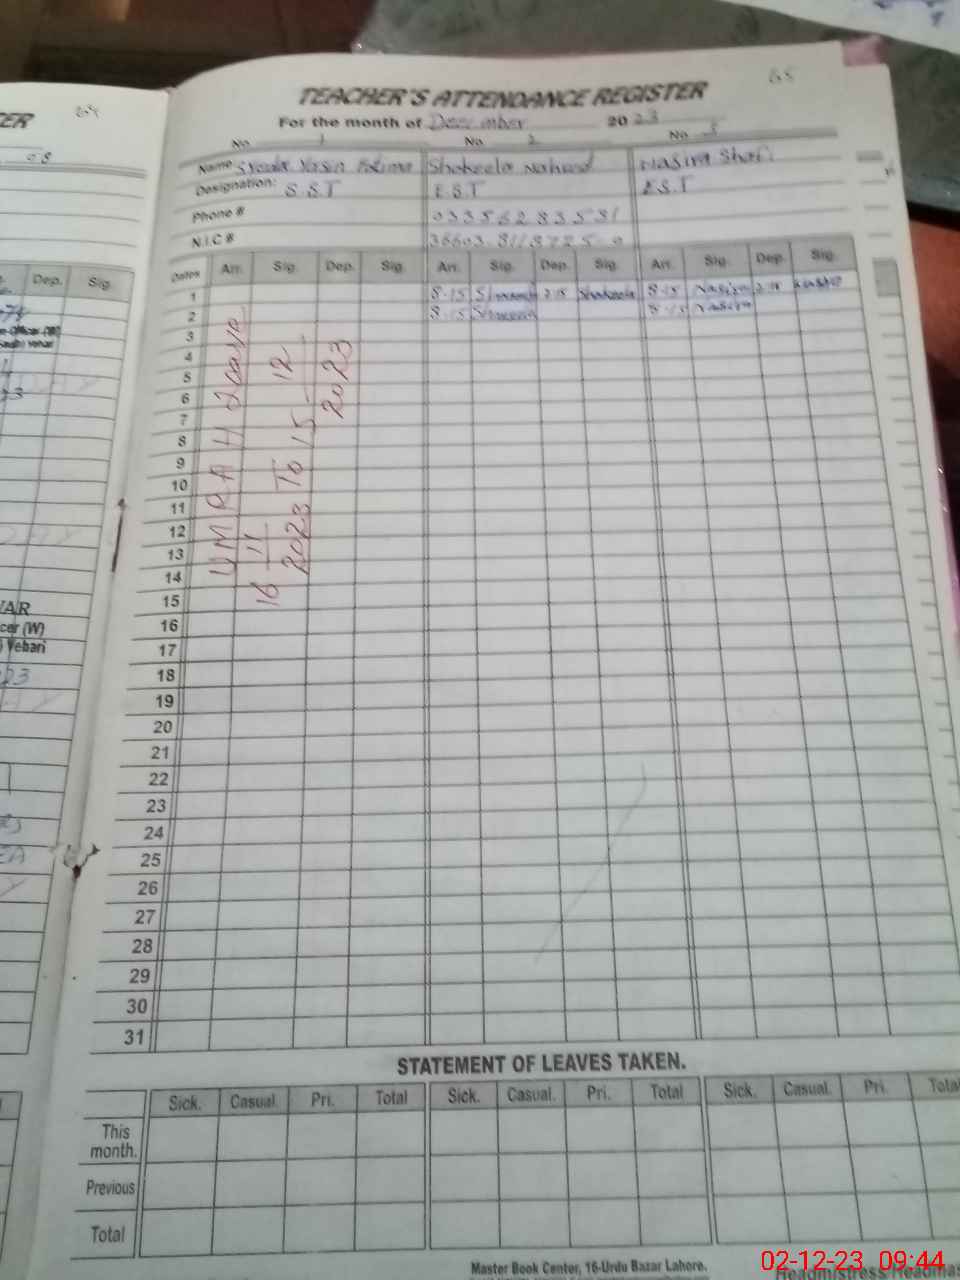 65
TEACHER'S ATTENDANCE REGISTER
For the month of December 2023
No. 1 No. 2 No. 3
Name Syeda Yasin Fatima Shakeela Naheed Nasira Shafi
Designation: S.S.T E.S.T E.S.T
Phone # 03356283531
N.I.C #
Dates Arr. Sig. Dep. Sig. Arr. Sig. Dep. Sig. Arr. Sig. Dep. Sig.
1 8-15 Shakeela 2:15 Shakeela 8-15 Nasira 2:15 Nasira
2 8-15 Shakeela 8-15 Nasira
3
4
5
6
7
8
9
10
11
12
13
14
15
16
17
18
19
20
21
22
23
24
25
26
27
28
29
30
31
UMRAH Leave
16-11-2023 To 15-12-2023
STATEMENT OF LEAVES TAKEN.
Sick. Casual. Pri. Total Sick. Casual. Pri. Total Sick. Casual. Pri. Total
This month.
Previous
Total
Master Book Center, 16-Urdu Bazar Lahore.
Headmistress
02-12-23 09:44
ER
08
Dep. Sig.
VAR
cer (W)
Vehari